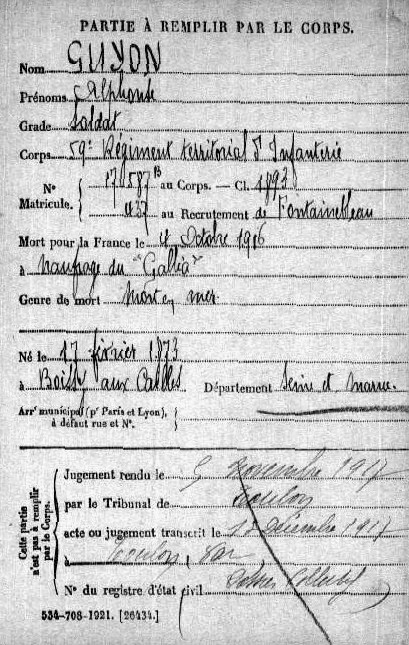 PARTIE À REMPLIR PAR LE CORPS.
Nom GUYON
Prénoms Alphonse
Grade Soldat
Corps 59e Régiment territorial d'Infanterie
N° Matricule. { 17587 B au Corps. — Cl. 1893
437 au Recrutement de Fontainebleau
Mort pour la France le 4 Octobre 1916
à Naufrage du "Gallia"
Genre de mort Mort en mer
Né le 17 février 1873
à Boissy aux Cailles Département Seine et Marne
Arrt municipal (pr Paris et Lyon), à défaut rue et N°. {
Cette partie n'est pas à remplir par le Corps.
Jugement rendu le 9 Novembre 1917
par le Tribunal de Toulon
acte ou jugement transcrit le Décembre 1917
à Toulon, Var
N° du registre d'état civil
534-708-1921. [26434.]